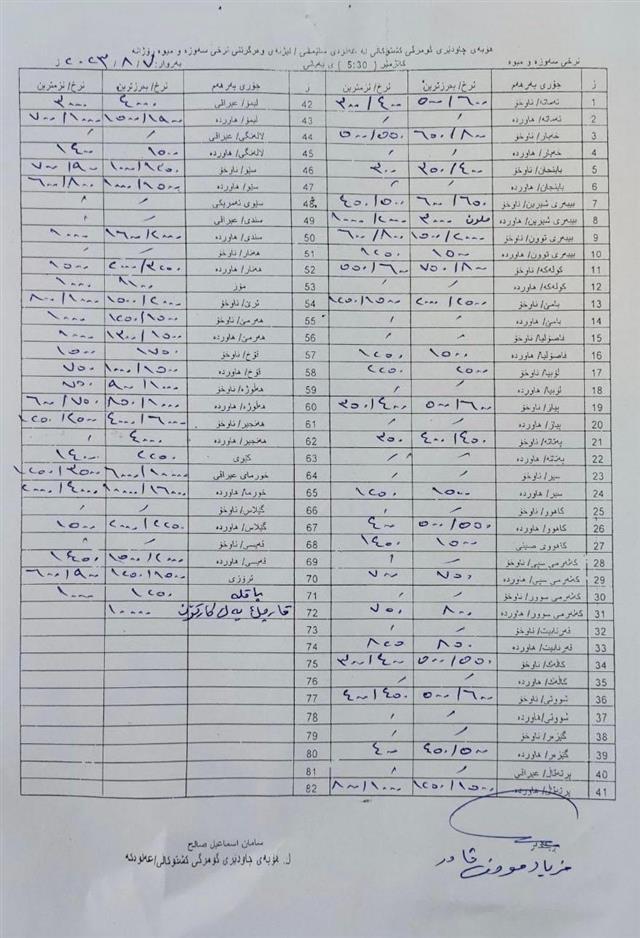 هۆبەی چاودێری گومرگی کشتوکاڵی لە عەلوەی سلێمانی / لیژنەی وەرگرتنی نرخی سەوزە و میوە ڕۆژانە
نرخی سەوزە و میوە کاتژمێر ( 5:30 ) ی بەیانی بەروار: ٢٠٢٣/٨/٧
ز جۆری بەرهەم نرخ/ بەرزترین نرخ/ نزمترین ز جۆری بەرهەم نرخ/ بەرزترین نرخ/ نزمترین
1 تەماتە/ ناوخۆ ٥٠٠/٦٠٠ ٣٠٠/٤٠٠ 42 لیمۆ/ عیراقی ٤٠٠٠ ٣٠٠٠
2 تەماتە/ هاوردە 43 لیمۆ/ هاوردە ١٥٠٠/١٩٠٠ ٧٠٠/١٠٠٠
3 خەیار/ ناوخۆ ٦٥٠/٨٠٠ ٥٠٠/٥٥٠ 44 لالەنگی/ عیراقی
4 خەیار/ هاوردە 45 لالەنگی/ هاوردە ١٥٠٠ ١٤٠٠
5 باینجان/ ناوخۆ ٣٥٠/٤٠٠ ٣٠٠ 46 سێو/ ناوخۆ ١٠٠٠/١٢٥٠ ٧٠٠/٩٠٠
6 باینجان/ هاوردە 47 سێو/ هاوردە ١٠٠٠/١٥٠٠ ٦٠٠/٨٠٠
7 بیبەری شیرین/ ناوخۆ ٦٠٠/٦٥٠ ٤٥٠/٥٠٠ 48 سێوی ئەمریکی
8 بیبەری شیرین/ هاوردە ملون ٣٠٠٠ ١٠٠٠/٢٠٠٠ 49 سندی/ عیراقی
9 بیبەری توون/ ناوخۆ ١٥٠٠/٢٠٠٠ ٦٠٠/٨٠٠ 50 سندی/ هاوردە ١٦٠٠/٢٠٠٠ ١٠٠٠
10 بیبەری توون/ هاوردە ١٥٠٠ ١٢٥٠ 51 هەنار/ ناوخۆ
11 کولەکە/ ناوخۆ ٧٥٠/٨٠٠ ٥٥٠/٦٠٠ 52 هەنار/ هاوردە ٢٠٠٠/٢٢٥٠ ١٥٠٠
12 کولەکە/ هاوردە 53 مۆز ١٠٠٠
13 بامێ/ ناوخۆ ٢٠٠٠/٢٥٠٠ ١٢٥٠/١٥٠٠ 54 ترێ/ ناوخۆ ١٥٠٠/٢٠٠٠ ٨٠٠/١٠٠٠
14 بامێ/ هاوردە 55 هەرمێ/ ناوخۆ ١٢٥٠/١٥٠٠ ١٠٠٠
15 فاسۆلیا/ ناوخۆ 56 هەرمێ/ هاوردە ١٣٠٠/١٥٠٠ ١٠٠٠
16 فاسۆلیا/ هاوردە ١٥٠٠ ١٢٥٠ 57 قۆخ/ ناوخۆ ١٧٥٠ ١٥٠٠
17 لۆبیا/ ناوخۆ ٢٥٠٠ ٢٢٥٠ 58 قۆخ/ هاوردە ١٠٠٠/١٥٠٠ ٧٥٠
18 لۆبیا/ هاوردە 59 هەڵوژە/ ناوخۆ ٩٠٠/١٠٠٠ ٧٥٠
19 پیاز/ ناوخۆ ٥٠٠/٦٠٠ ٣٥٠/٤٠٠ 60 هەڵوژە/ هاوردە ٨٥٠/١٠٠٠ ٦٠٠/٧٥٠
20 پیاز/ هاوردە 61 هەنجیر/ ناوخۆ ٤٠٠٠/٦٠٠٠ ١٢٥٠/٢٥٠٠
21 پەتاتە/ ناوخۆ ٤٠٠/٤٥٠ ٣٥٠ 62 هەنجیر/ هاوردە ٤٠٠٠
22 پەتاتە/ هاوردە 63 کێوی ٢٢٥٠ ١٤٠٠
23 سیر/ ناوخۆ 64 خورمای عیراقی ٦٠٠٠/١٠٠٠٠ ١٢٥٠/٣٥٠٠
24 سیر/ هاوردە ١٥٠٠ ١٢٥٠ 65 خورما/ هاوردە ١٠٠٠٠/١٦٠٠٠ ٢٠٠٠/٤٠٠٠
25 کاهوو/ ناوخۆ 66 گێلاس/ ناوخۆ
26 کاهوو/ هاوردە ٥٠٠/٥٥٠ ٤٠٠ 67 گێلاس/ هاوردە ٢٠٠٠/٢٢٥٠ ١٥٠٠
27 کاهووی صینی ١٥٠٠ ١٤٥٠ 68 قەیسی/ ناوخۆ
28 کەلەرمی سپی/ ناوخۆ 69 قەیسی/ هاوردە ١٥٠٠/٢٠٠٠ ١٤٥٠
29 کەلەرمی سپی/ هاوردە ٧٥٠ ٧٠٠ 70 تروزی ١٢٥٠/١٥٠٠ ٦٠٠/٩٠٠
30 کەلەرمی سوور/ ناوخۆ 71 باقلە ١٢٥٠ ١٠٠٠
31 کەلەرمی سوور/ هاوردە ٨٠٠ ٧٥٠ 72 قارچک یەک کارتۆن ١٠٠٠٠
32 قەرنابیت/ ناوخۆ 73
33 قەرنابیت/ هاوردە ٨٥٠ ٨٢٥ 74
34 کاڵەک/ ناوخۆ ٥٠٠/٥٥٠ ٣٠٠/٤٠٠ 75
35 کاڵەک/ هاوردە 76
36 شووتی/ ناوخۆ ٥٠٠/٦٠٠ ٤٠٠/٤٥٠ 77
37 شووتی/ هاوردە 78
38 گێزەر/ ناوخۆ 79
39 گێزەر/ هاوردە ٤٥٠/٥٠٠ ٤٠٠ 80
40 پرتەقاڵ/ عیراقی 81
41 پرتەقاڵ/ هاوردە ١٢٥٠/١٥٠٠ ٨٠٠/١٠٠٠ 82
سامان اسماعیل صالح
ل. هۆبەی چاودێری گومرگی کشتوکاڵی/ عەلوەکە
قادر